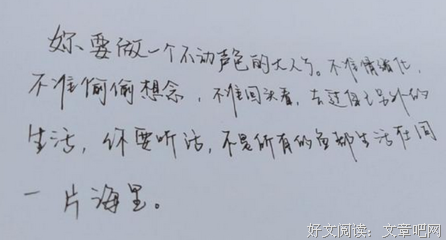 妳要做一个不动声色的大人了。不准情绪化,
不准偷偷想念,不准回头看,去过自己另外的
生活,你要听话,不是所有的鱼都生活在同
一片海里。
好文阅读:文章吧网